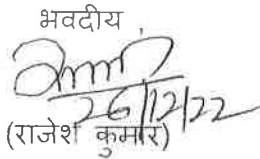 भवदीय
26/12/22
(राजेश कुमार)